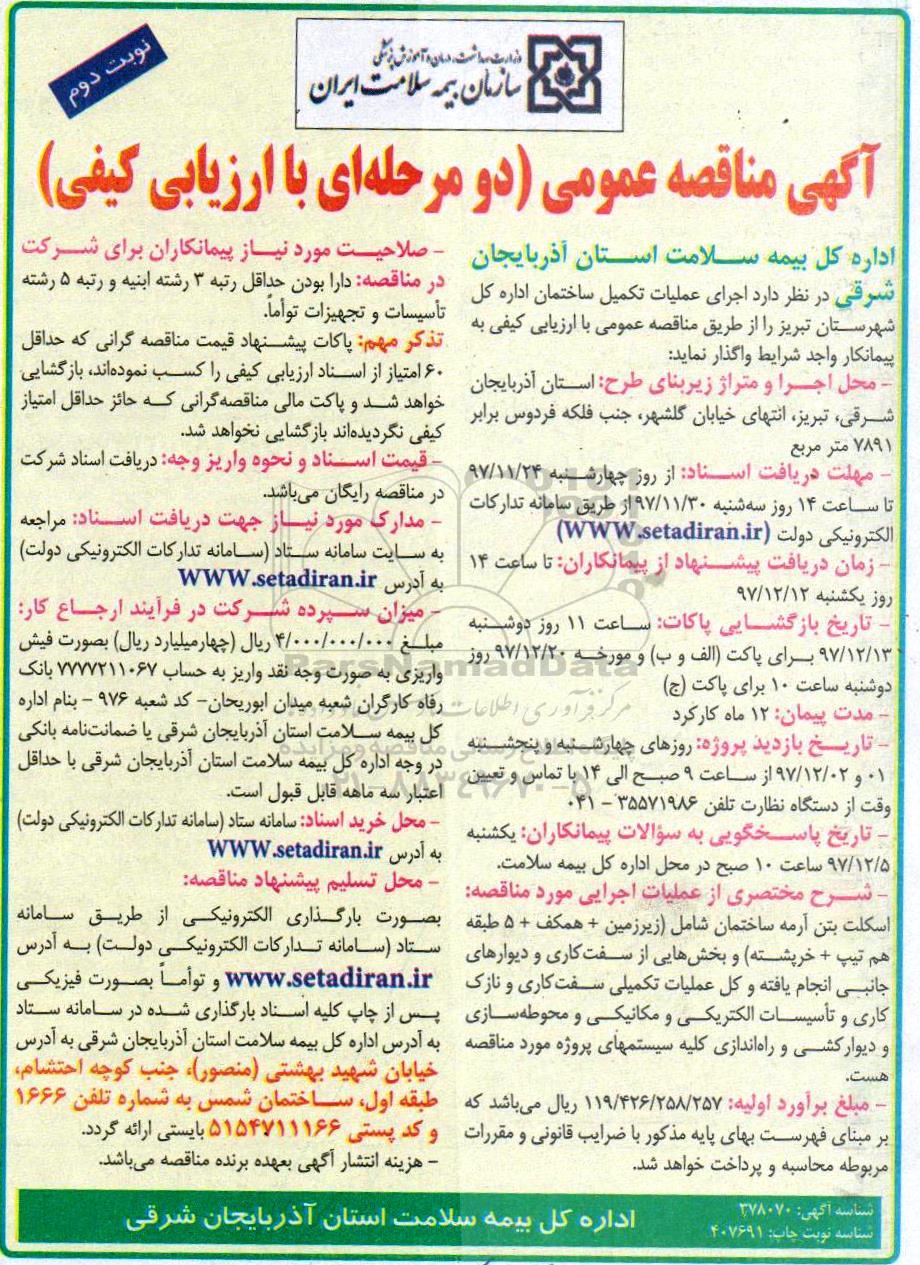 نوبت دوم
وزارت بهداشت، درمان و آموزش پزشکی
سازمان بیمه سلامت ایران
آگهی مناقصه عمومی (دو مرحله‌ای با ارزیابی کیفی)
اداره کل بیمه سلامت استان آذربایجان
شرقی در نظر دارد اجرای عملیات تکمیل ساختمان اداره کل
شهرستان تبریز را از طریق مناقصه عمومی با ارزیابی کیفی به
پیمانکار واجد شرایط واگذار نماید:
- محل اجرا و متراژ زیربنای طرح: استان آذربایجان
شرقی، تبریز، انتهای خیابان گلشهر، جنب فلکه فردوس برابر
۷۸۹۱ متر مربع
- مهلت دریافت اسناد: از روز چهارشنبه ۹۷/۱۱/۲۴
تا ساعت ۱۴ روز سه‌شنبه ۹۷/۱۱/۳۰ از طریق سامانه تدارکات
الکترونیکی دولت (WWW.setadiran.ir)
- زمان دریافت پیشنهاد از پیمانکاران: تا ساعت ۱۴
روز یکشنبه ۹۷/۱۲/۱۲
- تاریخ بازگشایی پاکات: ساعت ۱۱ روز دوشنبه
۹۷/۱۲/۱۳ برای پاکت (الف و ب) و مورخه ۹۷/۱۲/۲۰ روز
دوشنبه ساعت ۱۰ برای پاکت (ج)
- مدت پیمان: ۱۲ ماه کارکرد
- تاریخ بازدید پروژه: روزهای چهارشنبه و پنجشنبه
۰۱ و ۹۷/۱۲/۰۲ از ساعت ۹ صبح الی ۱۴ با تماس و تعیین
وقت از دستگاه نظارت تلفن ۳۵۵۷۱۹۸۶ - ۰۴۱
- تاریخ پاسخگویی به سؤالات پیمانکاران: یکشنبه
۹۷/۱۲/۵ ساعت ۱۰ صبح در محل اداره کل بیمه سلامت.
- شرح مختصری از عملیات اجرایی مورد مناقصه:
اسکلت بتن آرمه ساختمان شامل (زیرزمین + همکف + ۵ طبقه
هم تیپ + خرپشته) و بخش‌هایی از سفت‌کاری و دیوارهای
جانبی انجام یافته و کل عملیات تکمیلی سفت‌کاری و نازک
کاری و تأسیسات الکتریکی و مکانیکی و محوطه‌سازی
و دیوارکشی و راه‌اندازی کلیه سیستمهای پروژه مورد مناقصه
هست.
- مبلغ برآورد اولیه: ۱۱۹/۴۲۶/۲۵۸/۲۵۷ ریال می‌باشد که
بر مبنای فهرست بهای پایه مذکور با ضرایب قانونی و مقررات
مربوطه محاسبه و پرداخت خواهد شد.
- صلاحیت مورد نیاز پیمانکاران برای شرکت
در مناقصه: دارا بودن حداقل رتبه ۳ رشته ابنیه و رتبه ۵ رشته
تأسیسات و تجهیزات توأماً.
تذکر مهم: پاکات پیشنهاد قیمت مناقصه گرانی که حداقل
۶۰ امتیاز از اسناد ارزیابی کیفی را کسب نموده‌اند، بازگشایی
خواهد شد و پاکت مالی مناقصه‌گرانی که حائز حداقل امتیاز
کیفی نگردیده‌اند بازگشایی نخواهد شد.
- قیمت اسناد و نحوه واریز وجه: دریافت اسناد شرکت
در مناقصه رایگان می‌باشد.
- مدارک مورد نیاز جهت دریافت اسناد: مراجعه
به سایت سامانه ستاد (سامانه تدارکات الکترونیکی دولت)
به آدرس WWW.setadiran.ir
- میزان سپرده شرکت در فرآیند ارجاع کار:
مبلغ ۴/۰۰۰/۰۰۰/۰۰۰ ریال (چهارمیلیارد ریال) بصورت فیش
واریزی به صورت وجه نقد واریز به حساب ۷۷۷۷۲۱۱۰۶۷ بانک
رفاه کارگران شعبه میدان ابوریحان- کد شعبه ۹۷۶ - بنام اداره
کل بیمه سلامت استان آذربایجان شرقی یا ضمانت‌نامه بانکی
در وجه اداره کل بیمه سلامت استان آذربایجان شرقی با حداقل
اعتبار سه ماهه قابل قبول است.
- محل خرید اسناد: سامانه ستاد (سامانه تدارکات الکترونیکی دولت)
به آدرس WWW.setadiran.ir
- محل تسلیم پیشنهاد مناقصه:
بصورت بارگذاری الکترونیکی از طریق سامانه
ستاد (سامانه تدارکات الکترونیکی دولت) به آدرس
www.setadiran.ir و توأماً بصورت فیزیکی
پس از چاپ کلیه اسناد بارگذاری شده در سامانه ستاد
به آدرس اداره کل بیمه سلامت استان آذربایجان شرقی به آدرس
خیابان شهید بهشتی (منصور)، جنب کوچه احتشام،
طبقه اول، ساختمان شمس به شماره تلفن ۱۶۶۶
و کد پستی ۵۱۵۴۷۱۱۱۶۶ بایستی ارائه گردد.
- هزینه انتشار آگهی بعهده برنده مناقصه می‌باشد.
شناسه آگهی: ۳۷۸۰۷۰
شناسه نوبت چاپ: ۴۰۷۶۹۱
اداره کل بیمه سلامت استان آذربایجان شرقی
ParsNamadData
۰۲۱-۸۸۳۴۹۶۷۰-۵